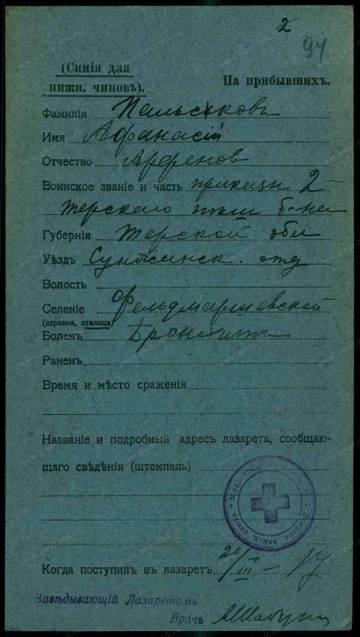 2
94
(Синія для
нижн. чиновъ).
На прибывшихъ.
Фамилія
Имя Афанасій
Отчество
Воинское званіе и часть 2
Терскаго б-на
Губернія Терской обл
Уѣздъ Сунженск. отд
Волость
Селеніе Фельдмаршевской
(деревня, станица)
Боленъ Бронхитъ
Раненъ
Время и мѣсто сраженія
Названіе и подробный адресъ лазарета, сообщаю-
щаго свѣдѣнія (штемпель)
Когда поступилъ въ лазаретъ 20/III — 17
Завѣдывающій Лазаретомъ
Врачъ